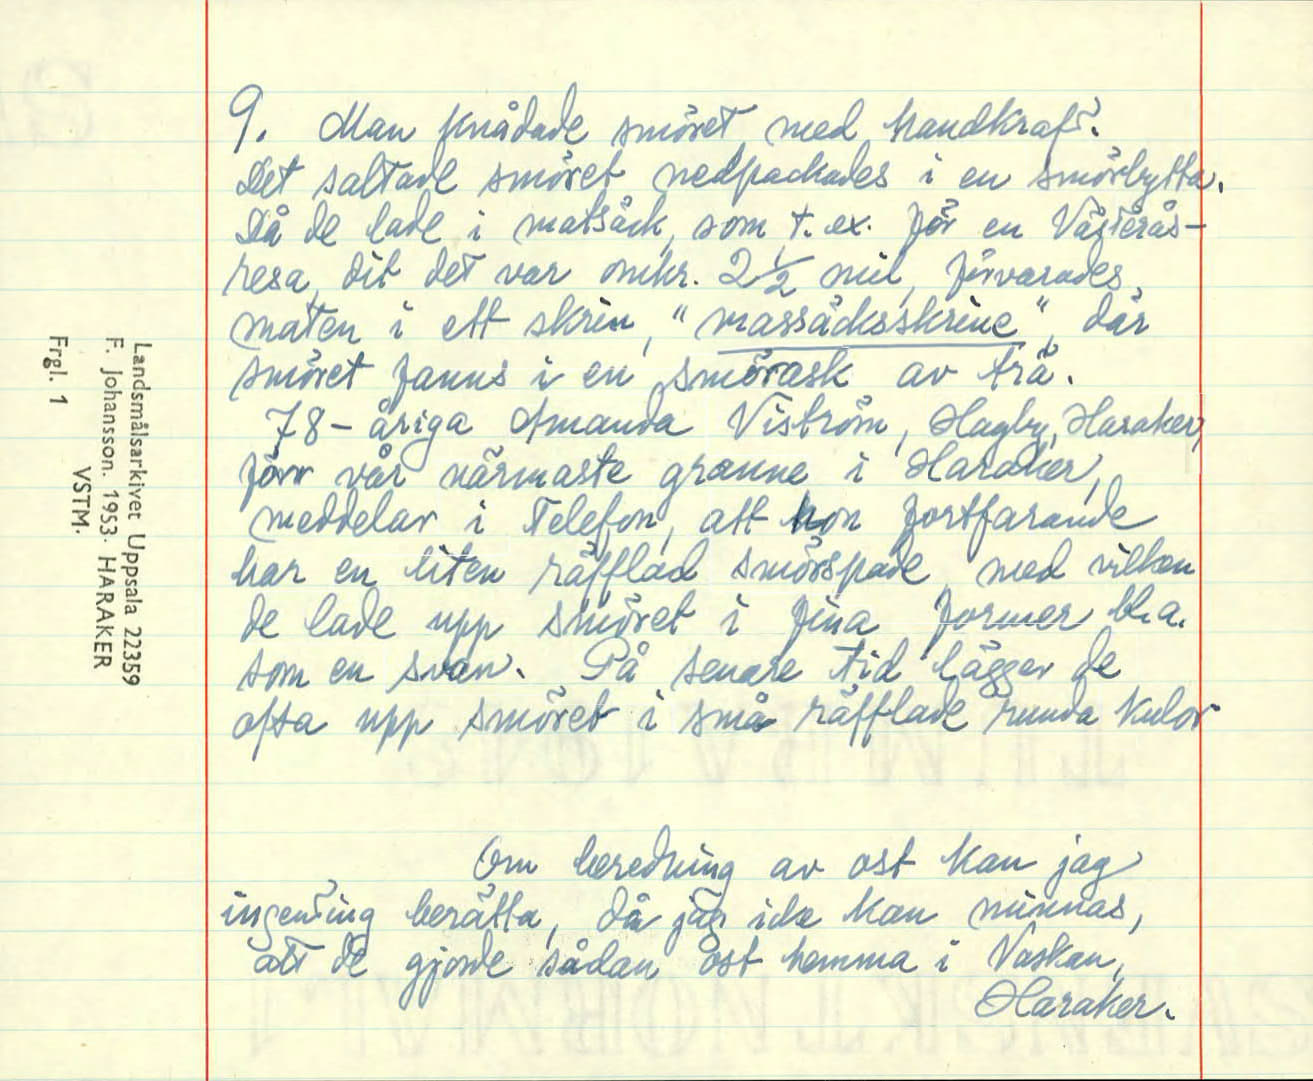 9. Man knådade smöret med handkraft.
Det saltade smöret nedpackades i en smörbytta.
Då de lade i matsäck, som t. ex. för en Västerås-
resa, dit det var omkr. 2 1/2 mil, förvarades
maten i ett skrin, "massäcksskrine", där
smöret fanns i en smörask av trä.
78-åriga Amanda Viström, Hagby, Haraker,
förr vår närmaste granne i Haraker,
meddelar i Telefon, att hon fortfarande
har en liten räfflad smörspade med vilken
de lade upp smöret i fina former bl.a.
som en svan. På senare tid lägger de
ofta upp smöret i små räfflade runda kulor
Om beredning av ost kan jag
ingenting berätta, då jag icke kan minnas,
att de gjorde sådan ost hemma i Vaskan,
Haraker.
Landsmålsarkivet Uppsala 22359
F. Johansson. 1953. HARAKER
VSTM.
Frgl. 1